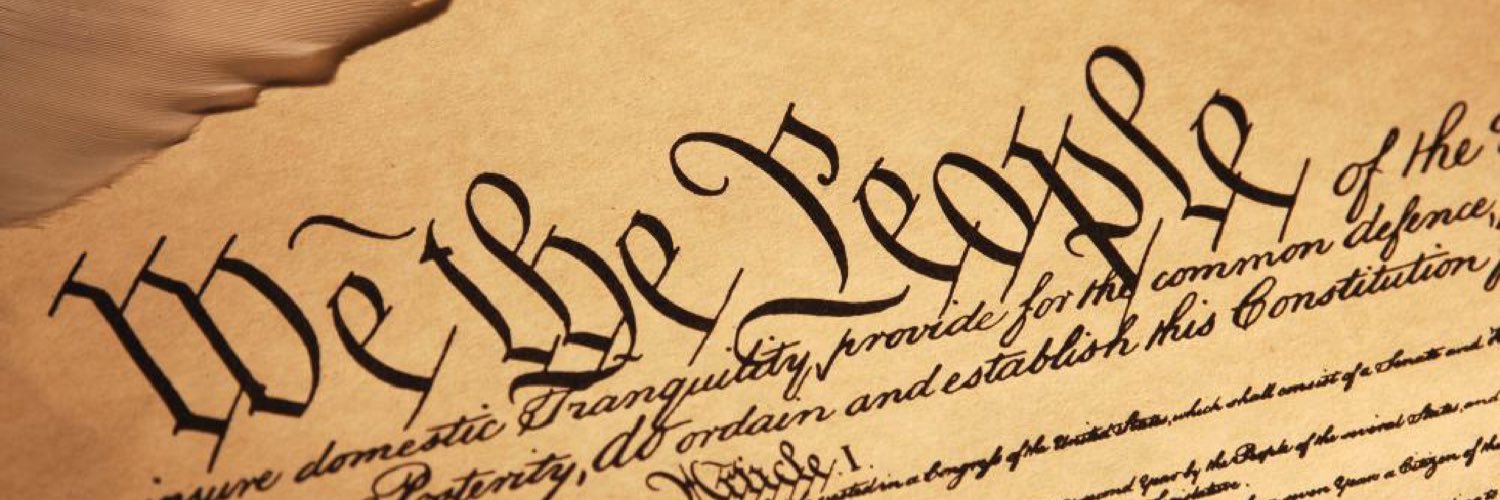 We the People of the
insure domestic Tranquility, provide for the common defence,
Posterity, do ordain and establish this Constitution
Article. I.
vested in a Congress of the United States, which shall consist of a Senate and
second Year by the People of the several States, and
Legislature.
seven Years a Citizen of the